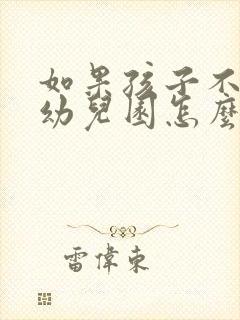 如果孩子不
幼兒園怎麼
雷偉東